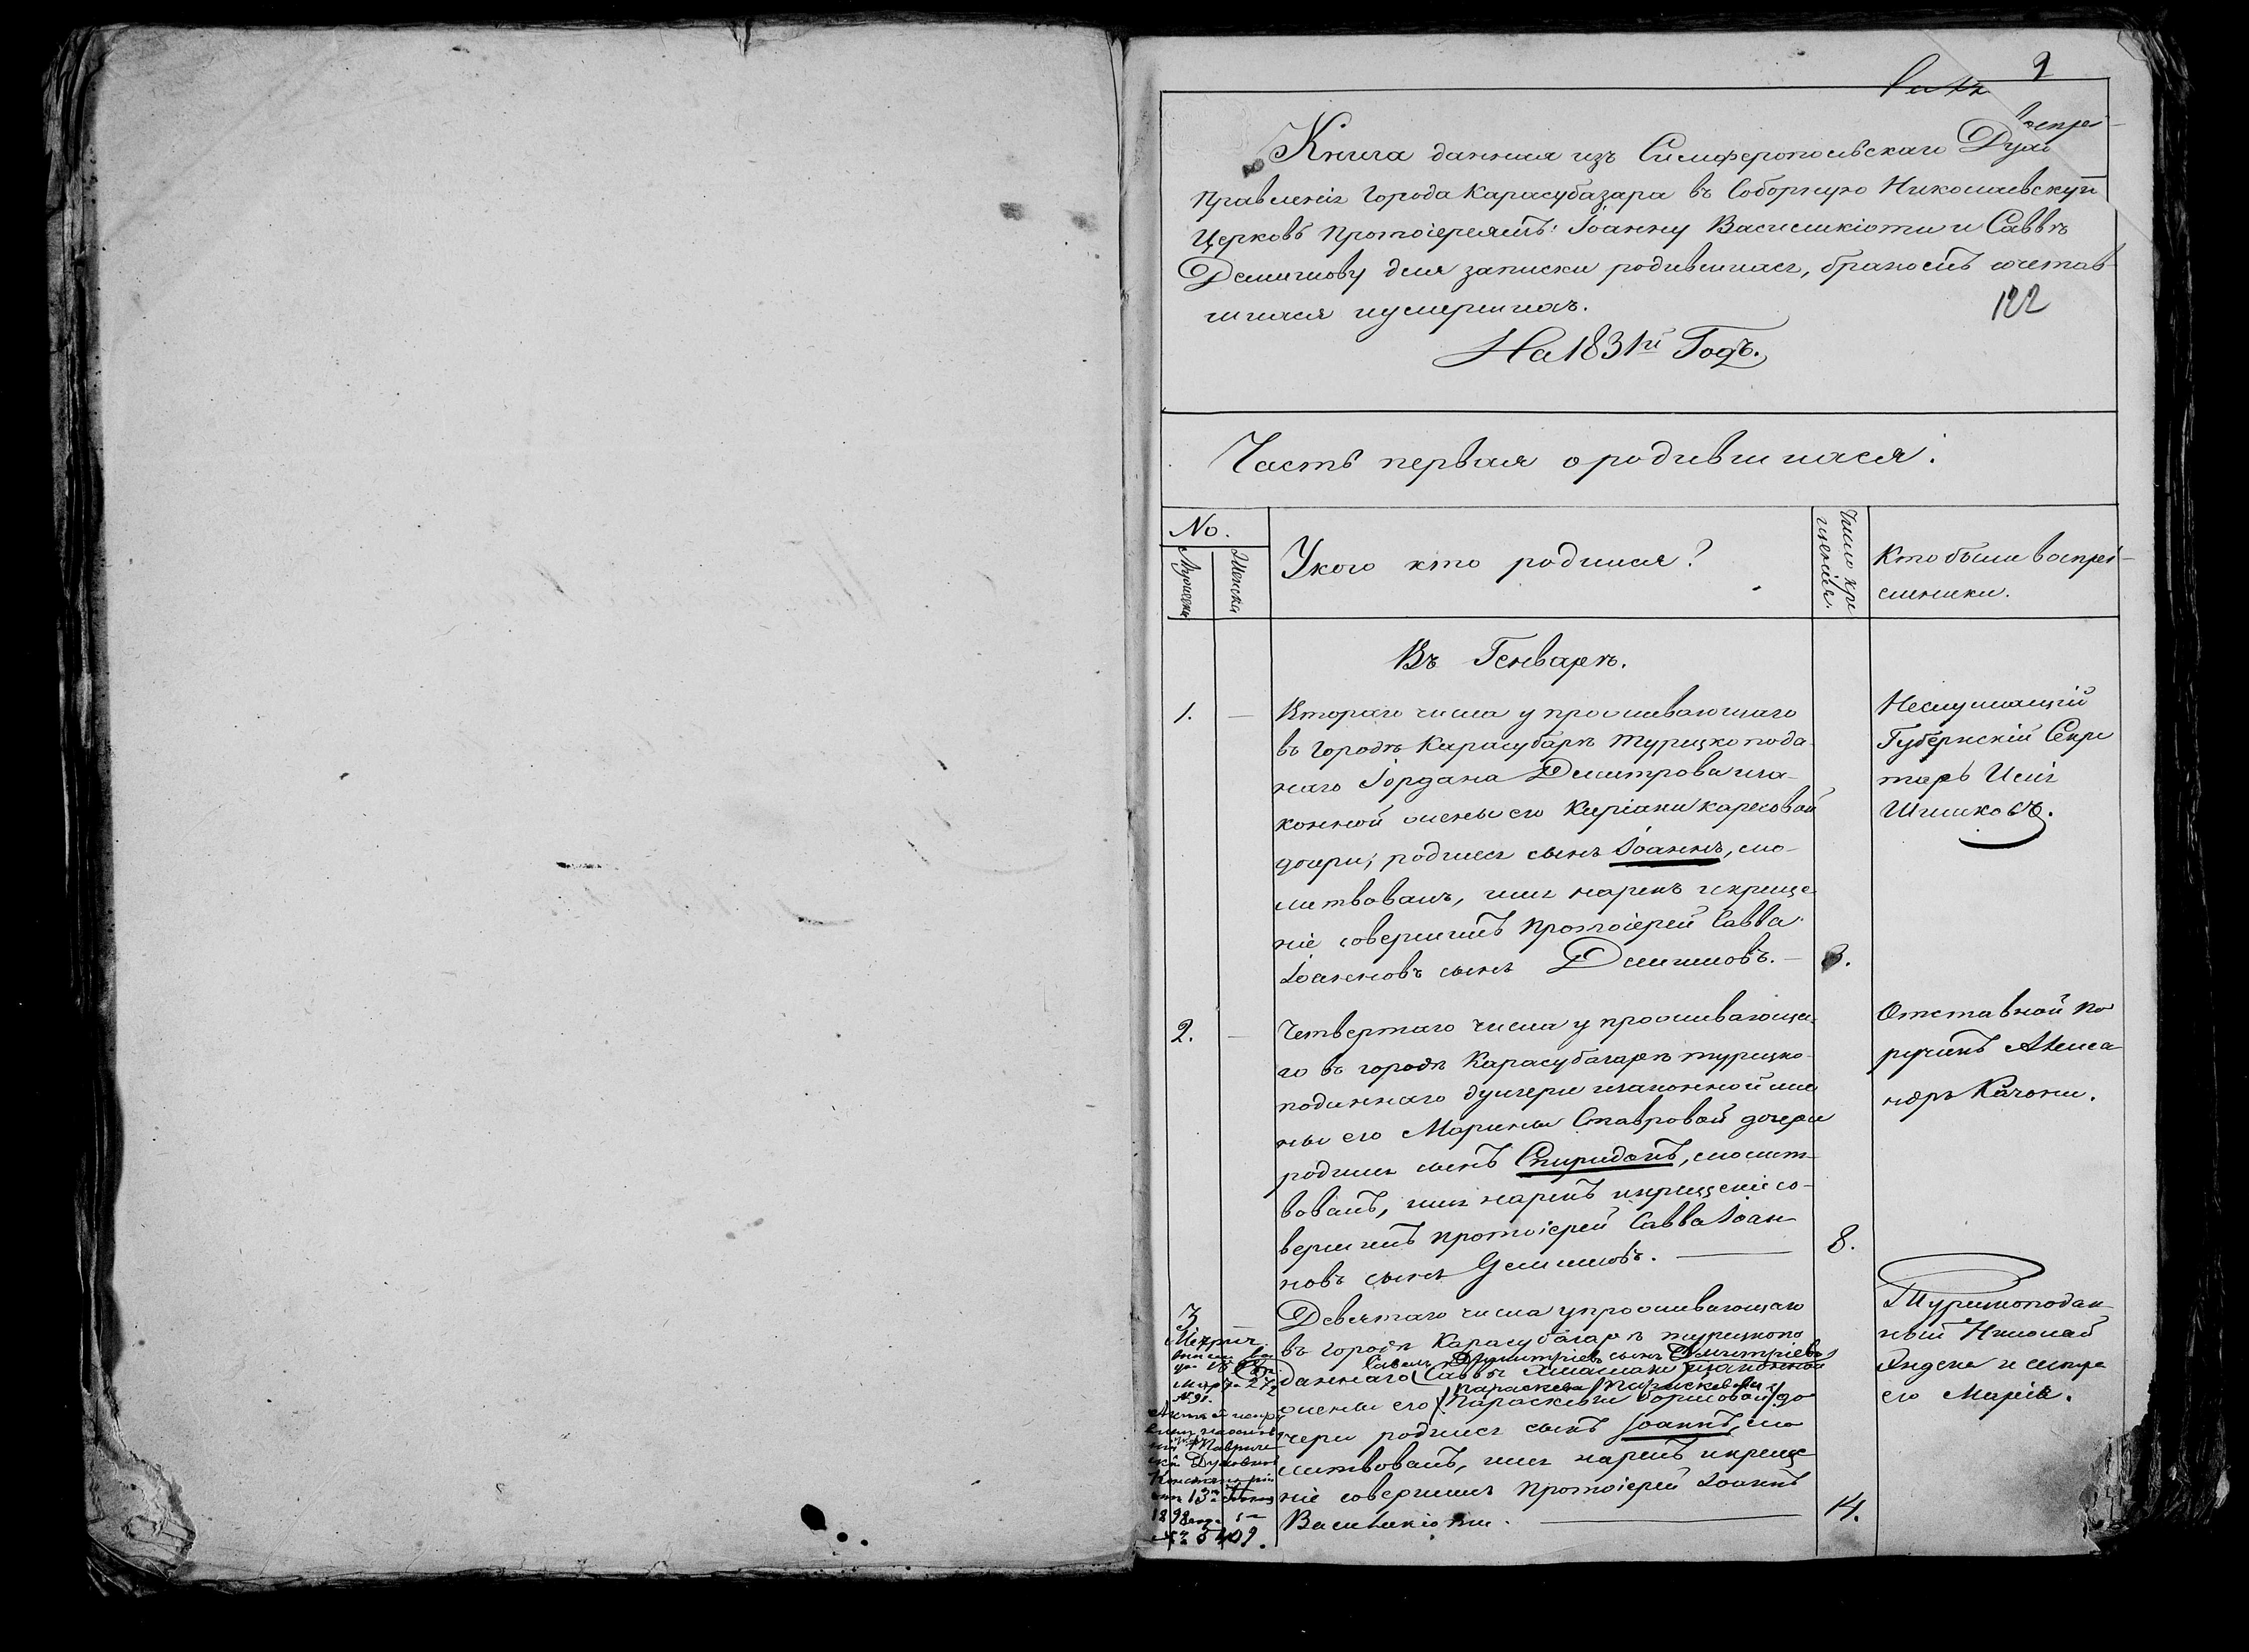 9
Книга данная изъ Симферопольскаго Дух:
Правленія Города Карасубазара въ Соборную Николаевскую
Церковь Протоіереямъ: Іоанну Василикіоти и Саввѣ
Демишову для записки родившихся, бракомъ сочетав-
шихся и умершихъ.
122
На 1831й Годъ.
Часть первая о родившихся.
No.
Мужеска
Женска
У кого кто родился?
Число кре
щенія.
Кто были воспріе-
мники.
Въ Генварѣ.
1.
Втораго числа у проживающаго
въ городѣ Карасубазрѣ Турецкопода
наго Іордана Дмитрова и за-
конной жены его Киріаки карповой
дочери; родился сынъ Іоаннъ, мо-
литвовалъ, имя нарекъ и креще
ніе совершилъ Протоіерей Савва
Іоанновъ сынъ Демишовъ.
3.
Неслужащій
Губернскій Секре
тарь Илія
Шишковъ.
2.
Четвертаго числа у проживающа-
го въ городѣ Карасубазарѣ турецко-
подданнаго и законной же
ны его Марины Ставровой дочери
родился сынъ Спиридонъ, молит-
вовалъ, имя нарекъ и крещеніе со-
вершилъ протоіерей Савва Іоан-
новъ сынъ Демишовъ.
8.
Отставной По
ручикъ Алекса
ндръ Качони.
3
Девятаго числа у проживающаго
въ городѣ Карасубазарѣ турецкопо
Димитріевъ сынъ Димитріевъ
даннаго Саввы и законной
Параскева
жены его Параскевы Борисовой до
чери родился сынъ Іоаннъ, мо
литвовалъ, имя нарекъ и креще
ніе совершилъ Протоіерей Іоаннъ
Василикіоти.
14.
Турецкоподан
ный Николай
и сестра
его Марія.
Метрич
Марта 27
№ 91.
Тавриче
ской Духовной
Консисторіи
отъ 13
1898 года за
№ 5409.